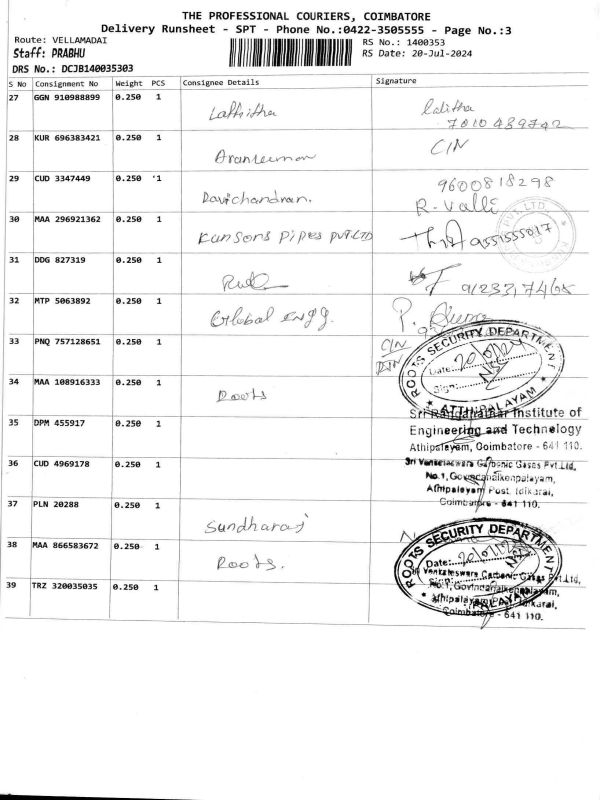 THE PROFESSIONAL COURIERS, COIMBATORE
Delivery Runsheet - SPT - Phone No.:0422-3505555 - Page No.:3
Route: VELLAMADAI
RS No.: 1400353
Staff: PRABHU
RS Date: 20-Jul-2024
DRS No.: DCJB140035303
S No Consignment No Weight PCS Consignee Details Signature
27 GGN 910988899 0.250 1 Lathitha Lalitha
7010439742
28 KUR 696383421 0.250 1 CIN
29 CUD 3347449 0.250 1 Davichandran. 9600818298
R. Valli
30 MAA 296921362 0.250 1 Kunsons Pipes PVT.LTD 9551555017
PVT. LTD.
31 DDG 827319 0.250 1
32 MTP 5063892 0.250 1 Global Engg. P.
33 PNQ 757128651 0.250 1 CIN
ROOTS SECURITY DEPARTMENT
Date: 20/07/24
Sign:
ATHIPALAYAM
34 MAA 108916333 0.250 1 Roots
Sri Ranganathar Institute of
35 DPM 455917 0.250 1 Engineering and Technology
Athipalayam, Coimbatore - 641 110.
36 CUD 4969178 0.250 1 Sri Venkateswara Carbonic Gases Pvt.Ltd,
No.1, Govindanaikenpalayam,
Athipalayam Post, Idikarai,
Coimbatore - 641 110.
37 PLN 20288 0.250 1 Sundharaj
38 MAA 866583672 0.250 1 Roots.
ROOTS SECURITY DEPARTMENT
Date: 20/07/24
39 TRZ 320035035 0.250 1 Sri Venkateswara Carbonic Gases Pvt.Ltd,
No.1, Govindanaikenpalayam,
Athipalayam Post, Idikarai,
Coimbatore - 641 110.